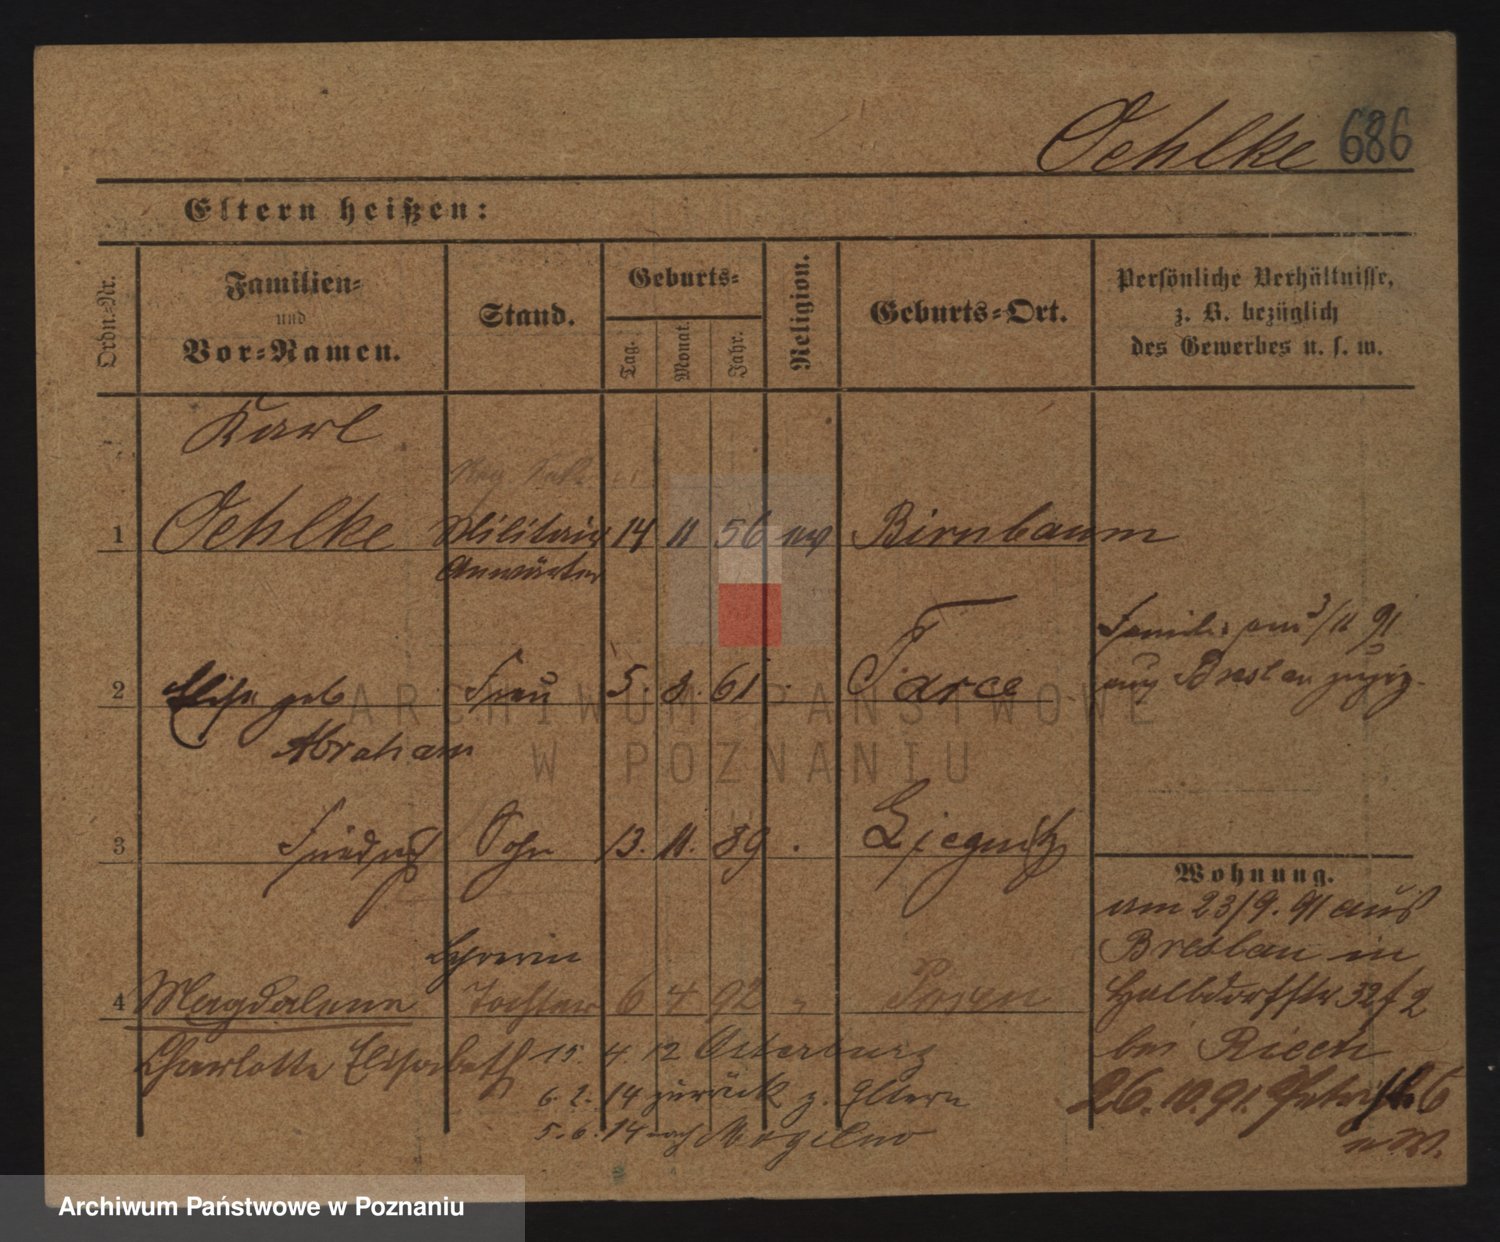 Oehlke 686
Eltern heißen:
Ordn.-Nr.
Familien-
und
Vor-Namen.
Stand.
Geburts-
Tag.
Monat.
Jahr.
Religion.
Geburts-Ort.
Persönliche Verhältnisse,
z. B. bezüglich
des Gewerbes u. s. w.
Karl
1 Oehlke Militair 14 11 56 ev Birnbaum
Anwärter
2 Elise geb Frau 5. 8. 61. Tarce
Abraham
Familie am 3/11 91
aus Breslau zugez.
3 Friedrich Sohn 13. 11. 89. Liegnitz
Wohnung.
am 23/9. 91 aus
Breslau in
Halbdorfstr 32 f 2
bei Rieen
26. 10. 91. Petristr. 6
n. W.
Lehrerin
4 Magdalene Tochter 6 4 92 " Posen
Charlotte Elisabeth 15. 4. 12 Osterburg
6. 2. 14 zurück z. Eltern
5. 6. 14 nach Mogilno
ARCHIWUM PAŃSTWOWE
W POZNANIU
Archiwum Państwowe w Poznaniu